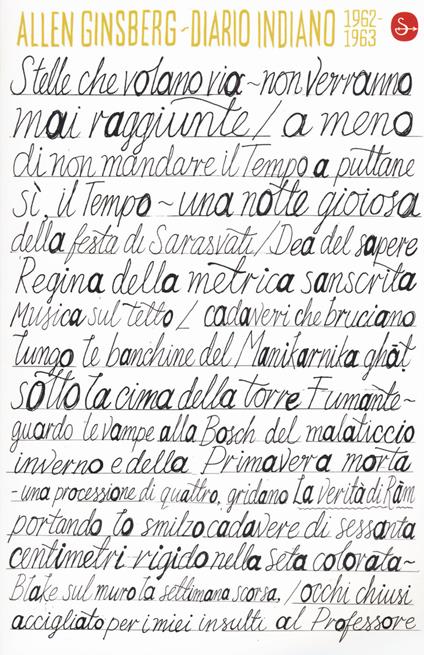 ALLEN GINSBERG ~ DIARIO INDIANO 1962-1963
Stelle che volano via ~ non verranno
mai raggiunte / a meno
di non mandare il Tempo a puttane
sì, il Tempo ~ una notte gioiosa
della festa di Sarasvati / Dea del sapere
Regina della metrica sanscrita
Musica sul tetto / cadaveri che bruciano
lungo le banchine del Manikarnika ghāt.
sotto la cima della torre Fumante ~
guardo le vampe alla Bosch del malaticcio
inverno e della Primavera morta
- una processione di quattro, gridano la verità di Rām
portando lo smilzo cadavere di sessanta
centimetri rigido nella seta colorata ~
Blake sul muro la settimana scorsa, / occhi chiusi
accigliato per i miei insulti al Professore